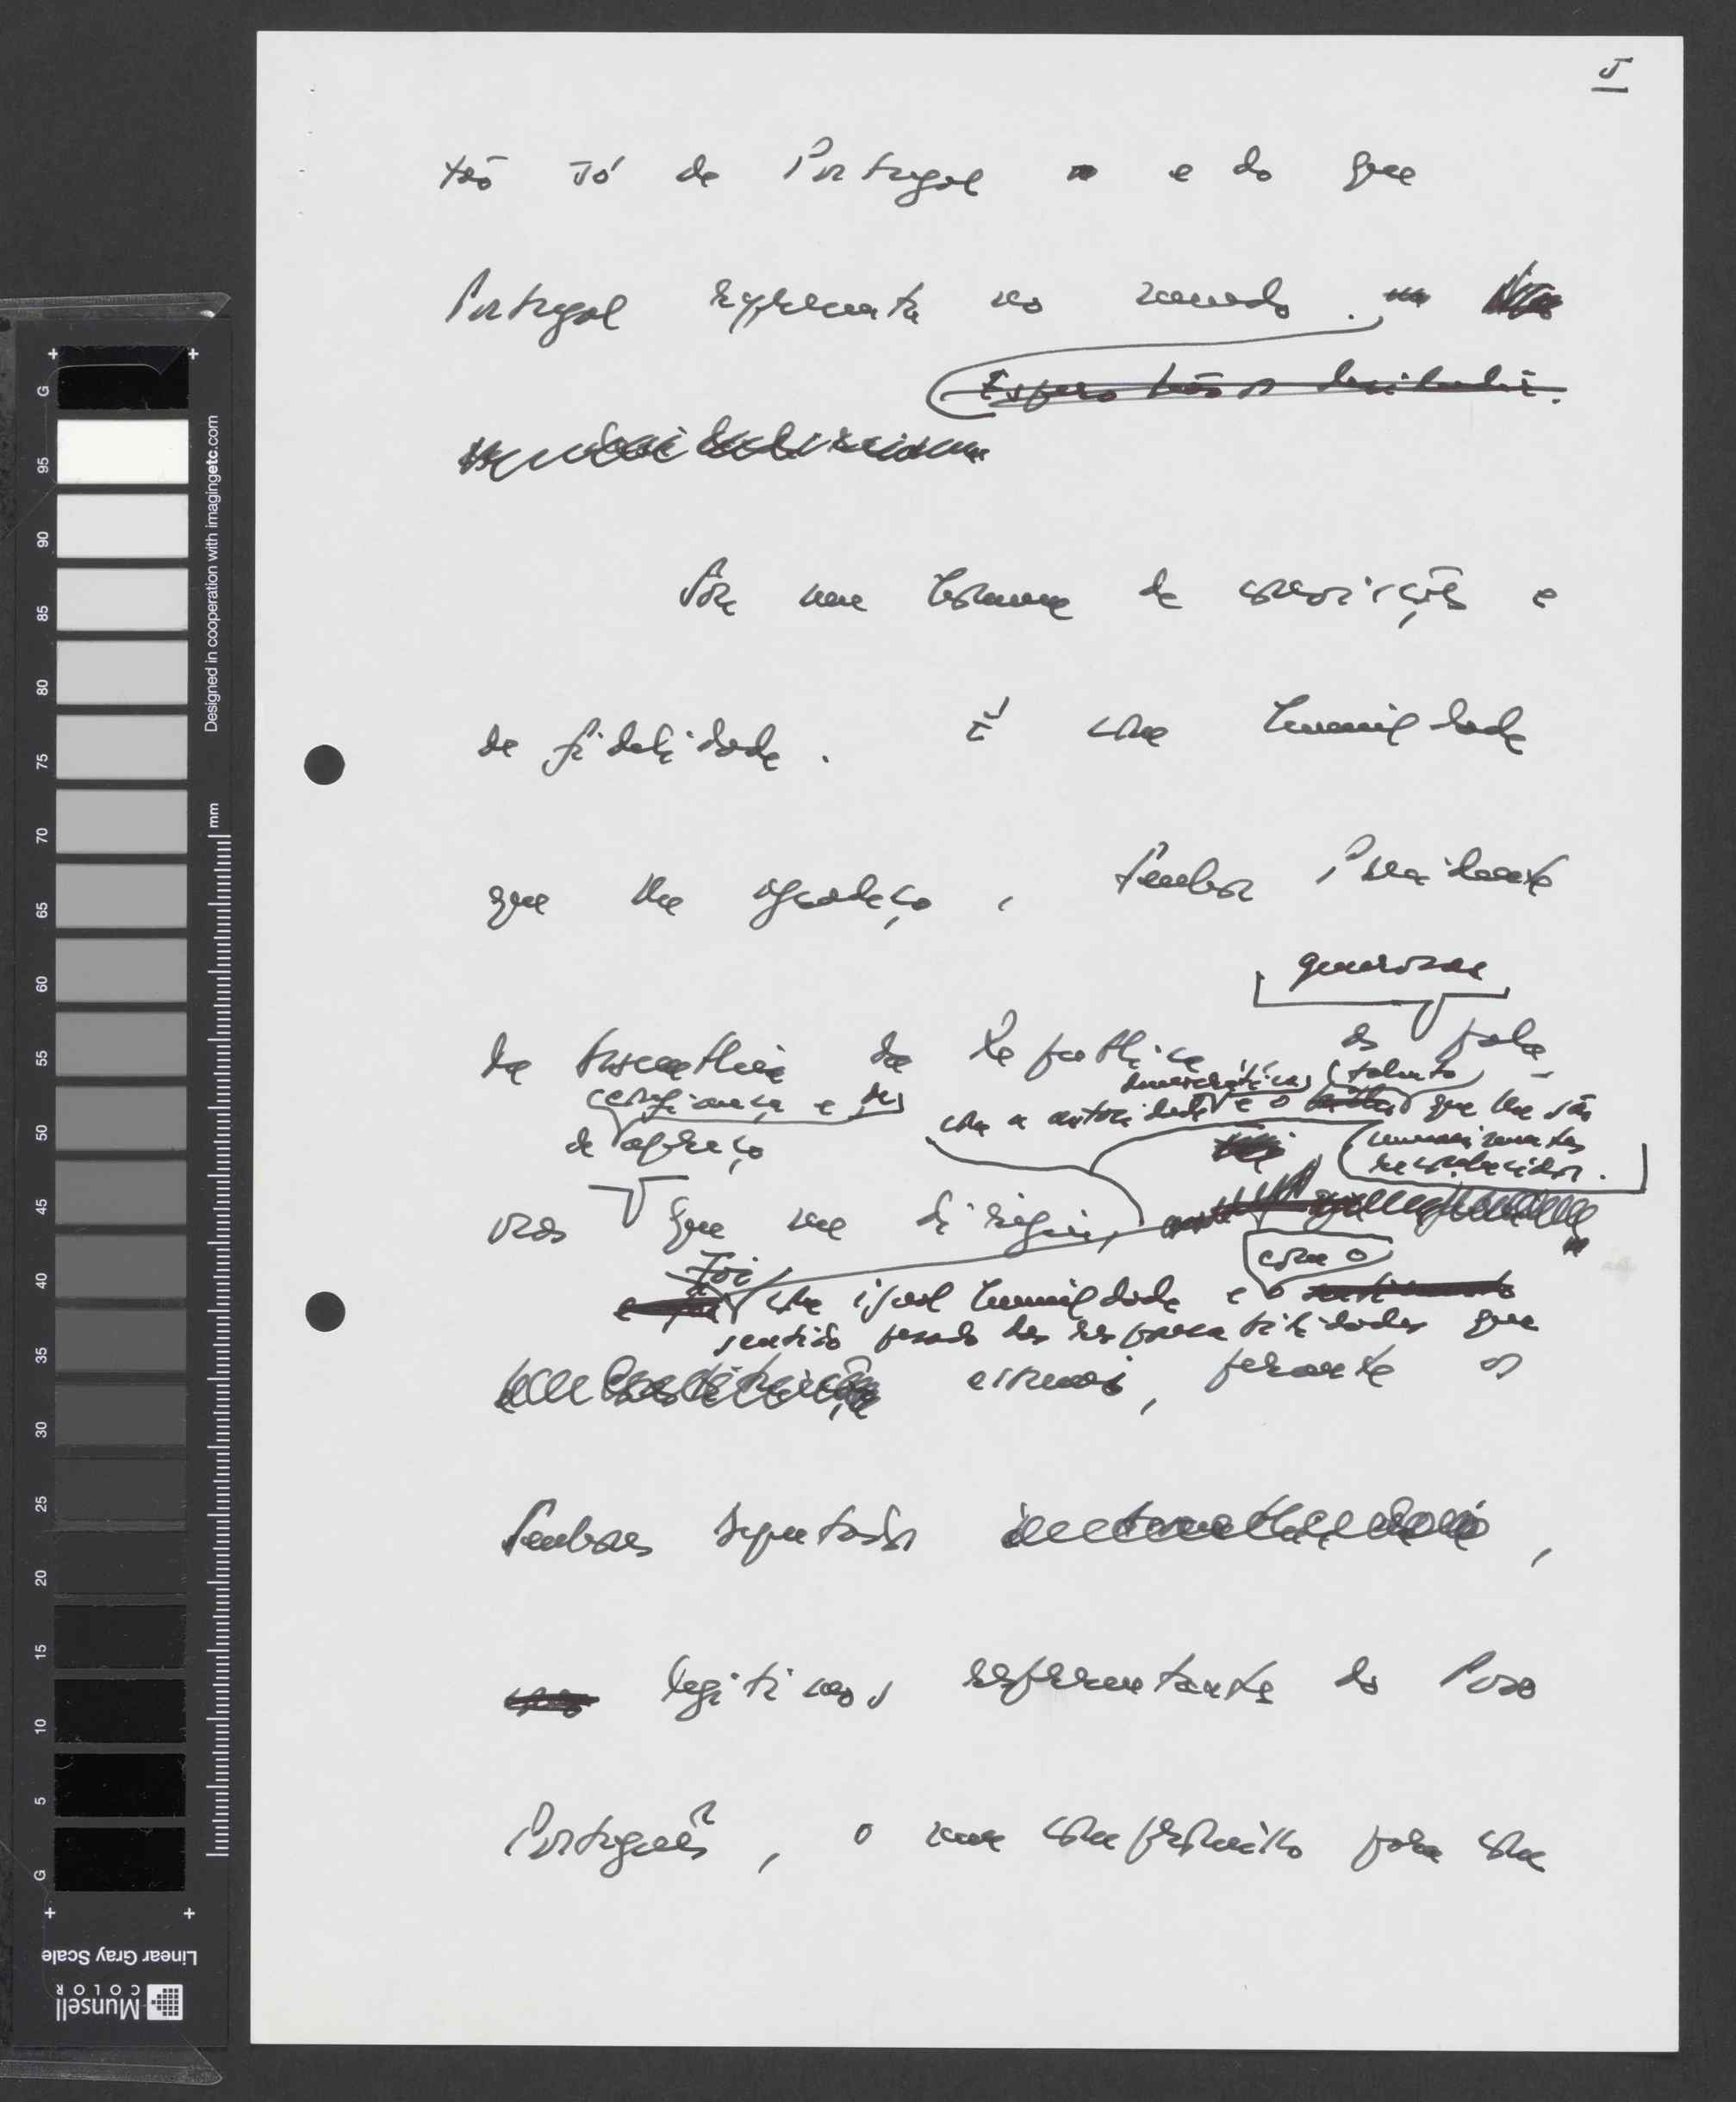 5
tão só de Portugal e do que
Portugal representa no mundo.
Espero não os desiludir.
Sou um homem de convicções e
de fidelidade. É com humildade
que lhe agradeço, Senhor Presidente
generosas
da Assembleia da República, as pala-
confiança e de
de apreço
com a autoridade democrática e o talento que lhe são
unanimemente
reconhecidos.
vras que me dirigiu,
Foi com igual humildade e com o
sentido pesado das responsabilidades que
assumi, perante os
Senhores Deputados,
legítimos representantes do Povo
Português, o meu compromisso para com
Designed in cooperation with imagingetc.com
mm
G
95
90
85
80
75
70
65
60
55
50
45
40
35
30
25
20
15
10
5
G
Linear Gray Scale
Munsell
COLOR